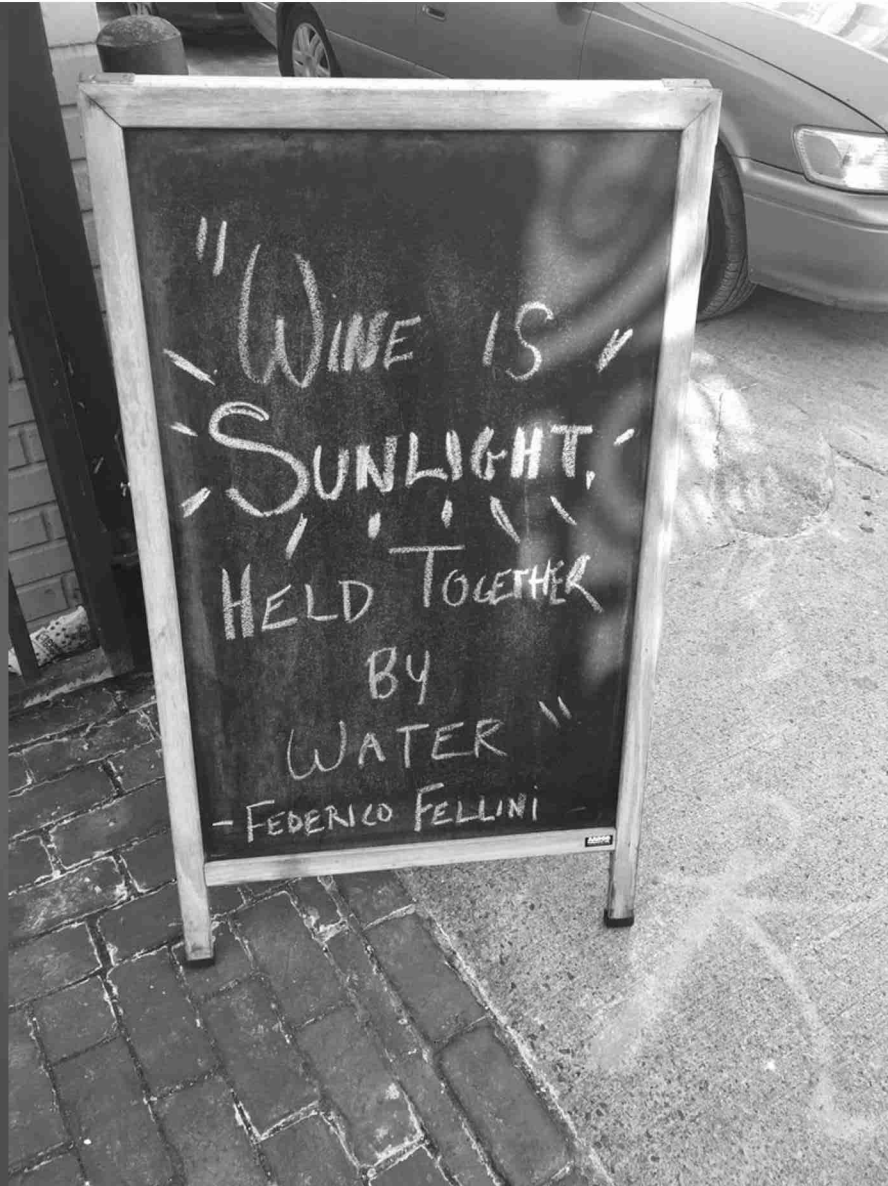 "WINE IS
SUNLIGHT,
HELD TOGETHER
BY
WATER"
- FEDERICO FELLINI -